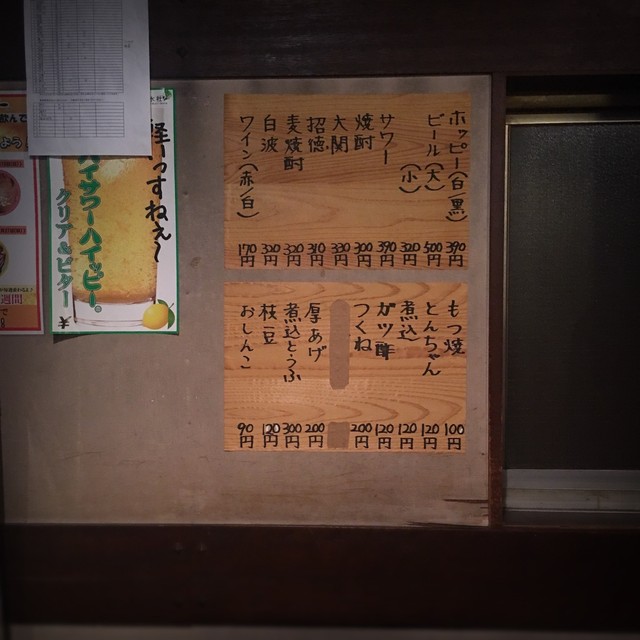 ホッピー(白 黒) 390円
ビール(大) 500円
(小) 320円
サワー 390円
焼酎 300円
大関 330円
招徳 310円
麦焼酎 320円
白波 320円
ワイン(赤/白) 170円
もつ焼 100円
とんちゃん 120円
煮込 120円
ガツ酢 120円
つくね 200円
厚あげ 200円
煮込とうふ 300円
枝豆 120円
おしんこ 90円
軽〜っすねぇ〜
ハイサワーハイッピー。
クリア&ビター
飲んで
よう
週間